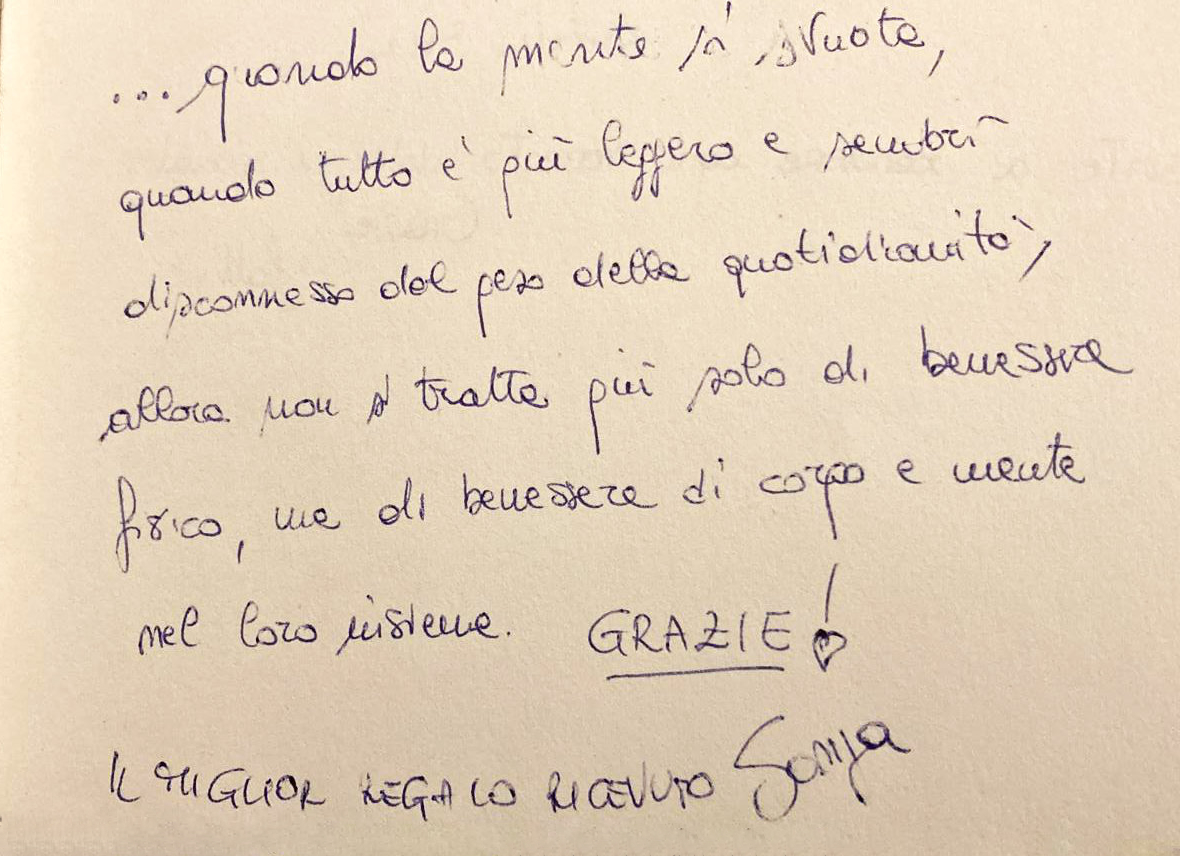 ... quando la mente si svuota,
quando tutto è più leggero e sembri
disconnesso dal peso della quotidianità,
allora non si tratta più solo di benessere
fisico, ma di benessere di corpo e mente
nel loro insieme. GRAZIE!
IL MIGLIOR REGALO RICEVUTO Sonja